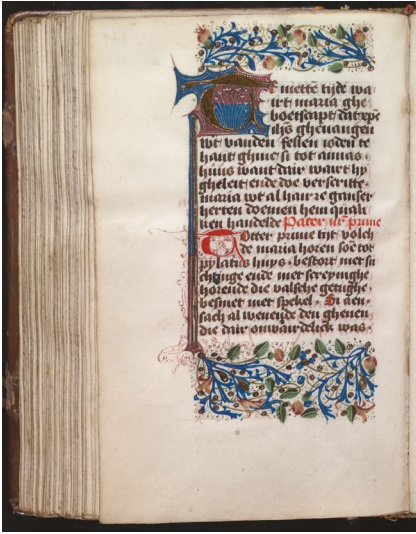 Te mette tijde wa
ert maria ghe
boetscapt dat
ihs gheuangen
wt vanden fellen ioden te
hant ghinc si tot annas
huus want dair wart hy
gheleit ende doe verscritte
maria wt al hair re ganser
herten doemen hem quali
ken handelde Pater nr prime
Totter prime tijt volch
de maria horen soē tot
pylatus huys . bestort met su
chtinge ende met screyinghe
horende die valsche getughe
besmet met spekel . Si aen
sach al wenende den ghenen
die dair onwairdelick was .